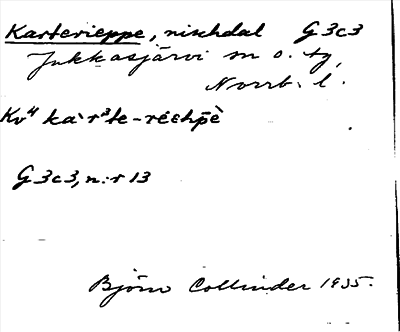 Karterieppe, nischdal G3c3
Jukkasjärvi sn o. tg,
Norrb. l.
Kv4 ka`r3te-rēehpē`
G3c3, n:r 13
Björn Collinder 1935.